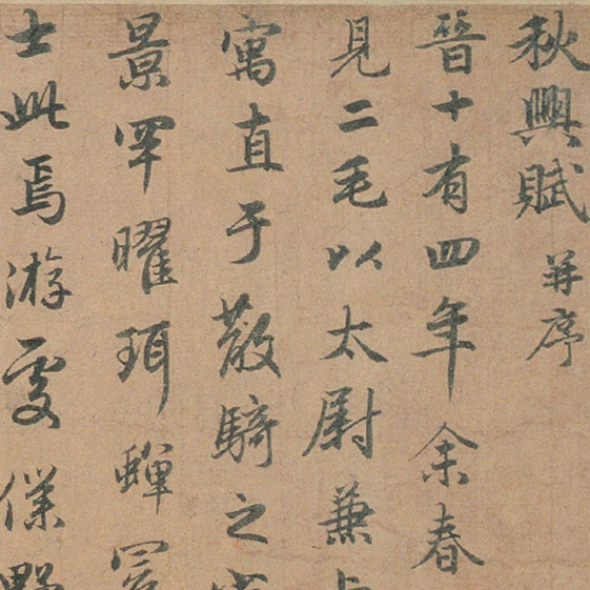 秋興賦并序
晉十有四年余春
見二毛以太尉兼
寓直于散騎之
景罕曜珥蟬冕
士此焉游處僕野